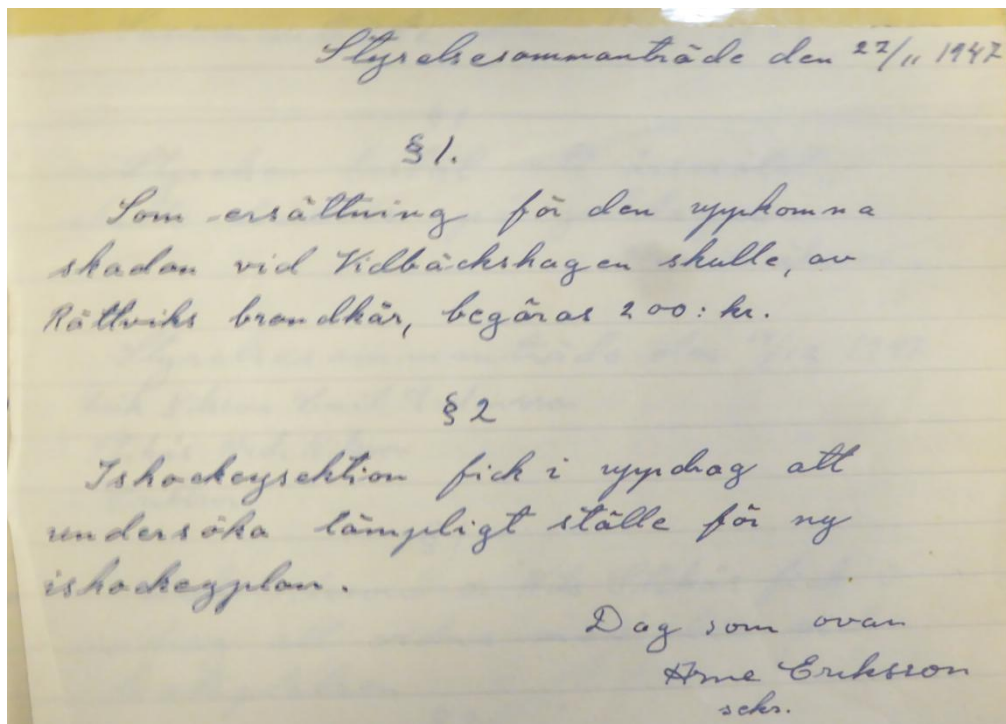 Styrelsesammanträde den 27/11 1947
§ 1.
Som ersättning för den uppkomna
skadan vid Vidbäckshagen skulle, av
Rättviks brandkår, begäras 200: kr.
§ 2
Ishockeysektion fick i uppdrag att
undersöka lämpligt ställe för ny
ishockeyplan.
Dag som ovan
Arne Eriksson
sekr.